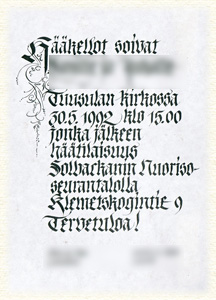 Hääkellot soivat
Tuusulan kirkossa
30.5. 1992 klo 15.00
jonka jälkeen
häätilaisuus
Solbackanin Nuoriso-
seurantalolla
Klemetskogintie 9
Tervetuloa!